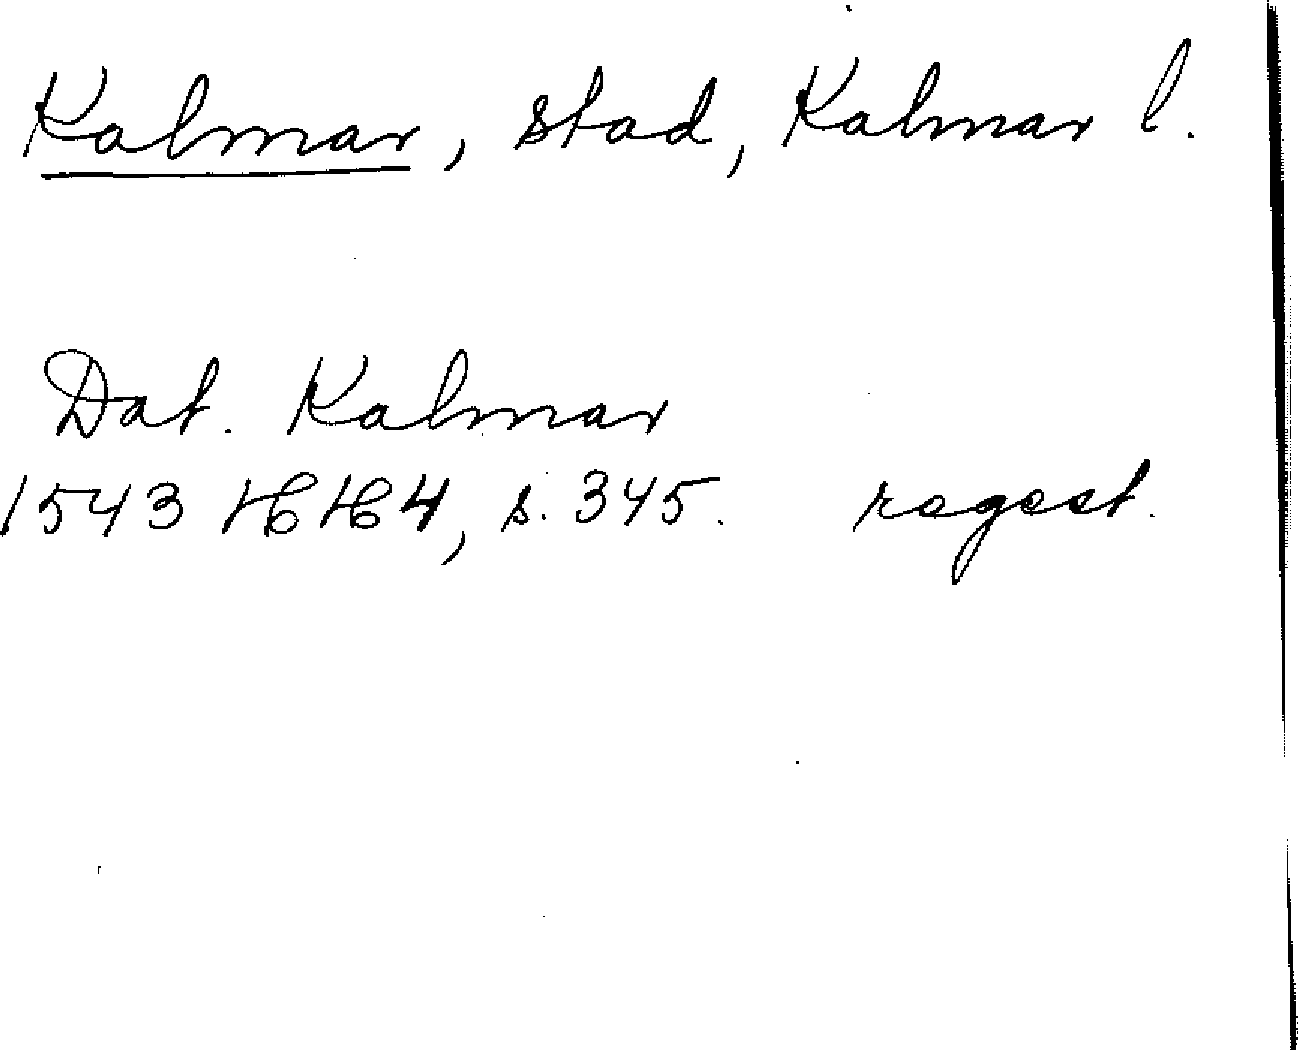 Kalmar, stad, Kalmar l.
Dat. Kalmar
1543 HH 4, s. 345. regest.